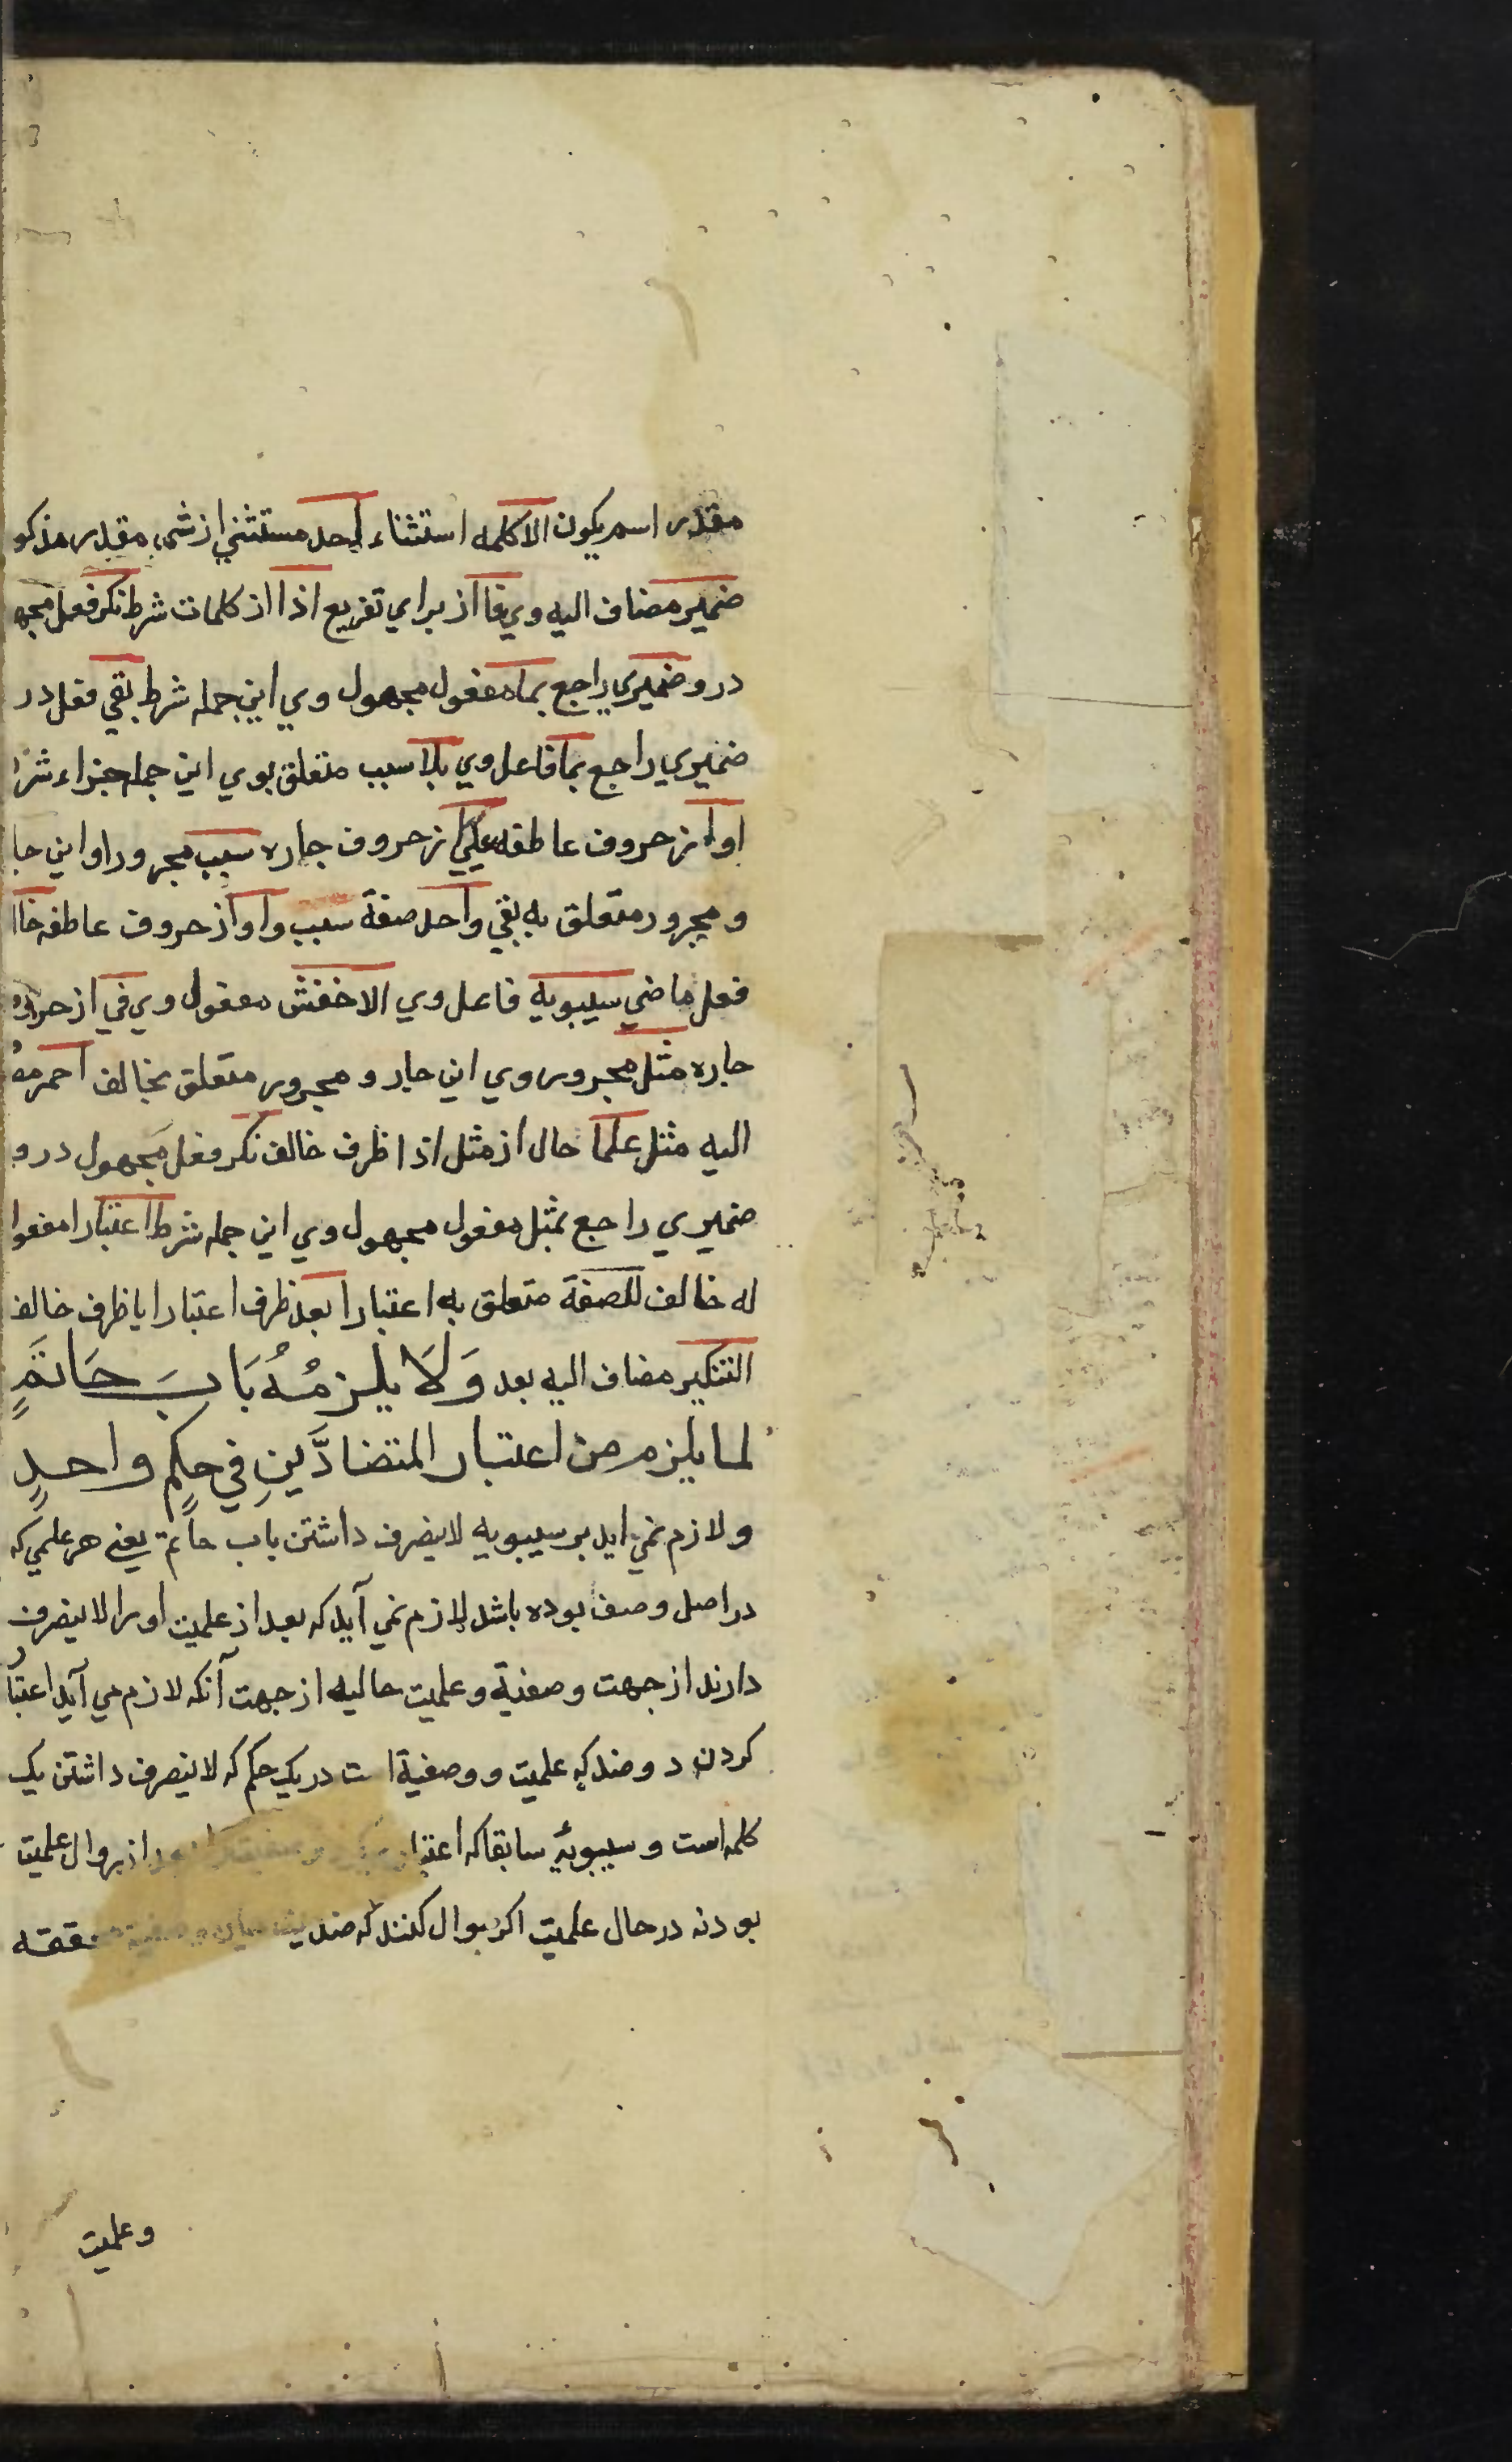 مقدر اسم يكون الا كلمه استثناء احد مستثني از شيء مقدر مذكو
ضمير مضاف اليه وي فا از براي تفريع اذا از كلمات شرط نكر فعل مجه
درو ضميري راجع بما مفعول مجهول وي اين جمله شرط بقي فعل در
ضميري راجع بما فاعل وي بلا سبب متعلق بوي اين جمله جزاء شر
او از حروف عاطفه علي از حروف جاره سبب مجرور او اين جا
و مجرور متعلق به بقي واحد صفة سبب واو از حروف عاطفه خا
فعل ماضي سيبويه فاعل وي الاخفش مفعول وي في از حرو
جاره مثل مجرور وي اين جار و مجرور متعلق بخالف احمر مض
اليه مثل علما حال از مثل اذا ظرف خالف نكر فعل مجهول درو
ضميري راجع بمثل مفعول مجهول وي اين جمله شرط اعتبارا مفعوا
له خالف للصفة متعلق به اعتبارا بعد ظرف اعتبارا يا ظرف خالف
التنكير مضاف اليه بعد وَلَا يلزمُهُ بَابَ حَاتمٍ
لما يلزم من اعتبار المتضادَّينِ في حكمٍ واحدٍ
و لازم نمي ايد بر سيبويه لاينصرف داشتن باب حاتم يعني هر علمي كه
در اصل وصف بوده باشد لازم نمي آيد كه بعد از علميت اورا لاينصرف
دارند از جهت وصفية و علميت حاليه از جهت آنكه لازم مي آيد اعتبا
كردن دو ضد كه علميت و وصفية است در يك حكم كه لاينصرف داشتن يك
كلمه است و سيبويه سابقا كه اعتبار بعد از زوال علميت
بود نه در حال علميت اكر سوال كنند كه ضديت ميان وصفية محققه
وعلميت